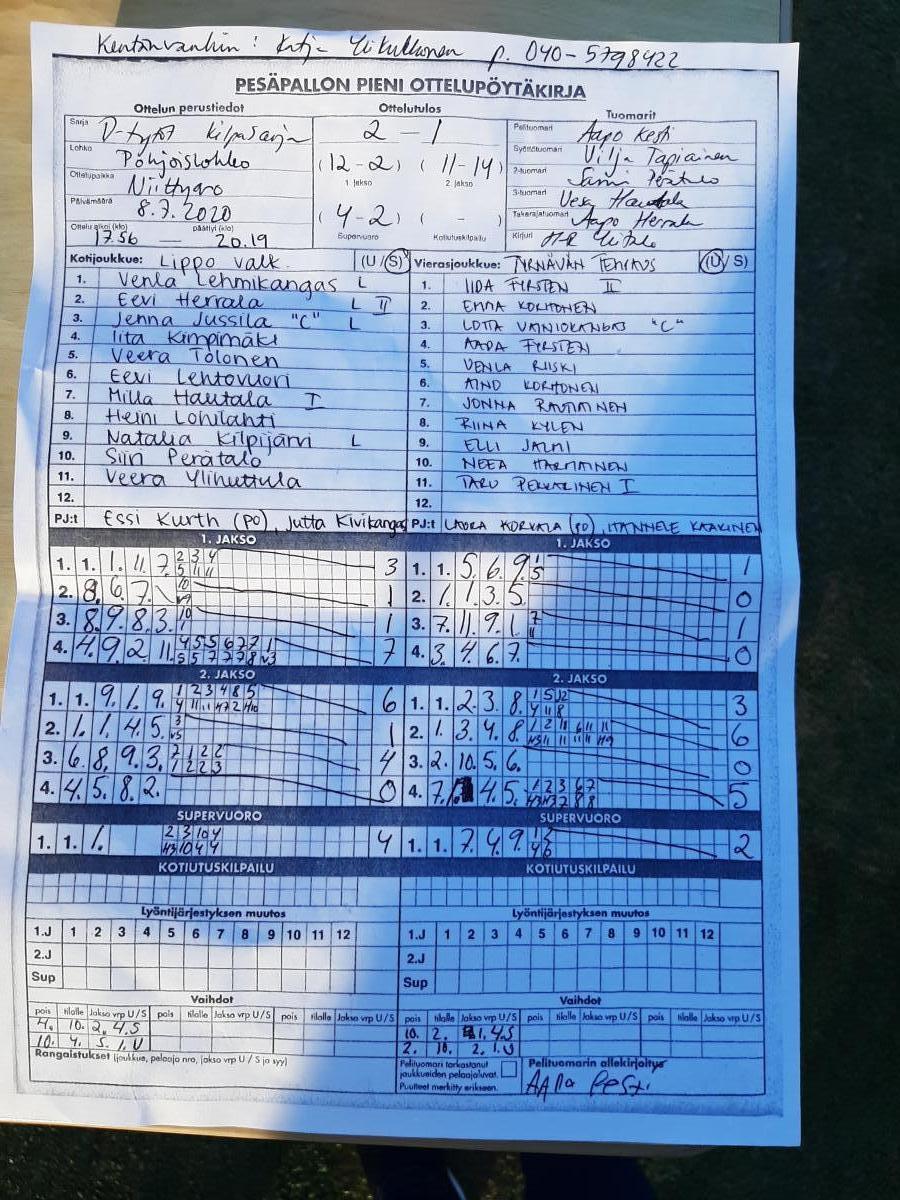 Kentänvanhin: Katja Ylitukkonen p. 040-5798422
PESÄPALLON PIENI OTTELUPÖYTÄKIRJA
Ottelun perustiedot
Sarja D-tytöt kilpasarja
Lohko Pohjoislohko
Ottelupaikka Niittyaro
Päivämäärä 8.7.2020
Ottelu alkoi (klo) päättyi (klo)
17.56 — 20.19
Ottelutulos
2 - 1
(12-2) (11-14)
1. jakso 2. jakso
(4-2) ( - )
Supervuoro Kotiutuskilpailu
Tuomarit
Pelituomari Aapo Kesti
Syöttötuomari Vilja Tapiainen
2-tuomari Sami Perätalo
3-tuomari Vesa Hautala
Takarajatuomari Aapo Herrala
Kirjuri H-R Ylitalo
Kotijoukkue: Lippo valk. (U/S)
1. Venla Lehmikangas L
2. Eevi Herrala L II
3. Jenna Jussila "C" L
4. Iita Kimpimäki
5. Veera Tolonen
6. Eevi Lehtovuori
7. Milla Hautala I
8. Heini Lohilahti
9. Natalia Kilpijärvi L
10. Siiri Perätalo
11. Veera Ylihuttula
12.
PJ:t Essi Kurth (PO), Jutta Kivikangas
Vierasjoukkue: TYRNÄVÄN TEMPAUS (U/S)
1. IIDA FYRSTEN II
2. EMMA KORHONEN
3. LOTTA VAINIOKANGAS "C"
4. AADA FYRSTEN
5. VENLA RIISKI
6. AINO KORHONEN
7. JONNA RAUTIAINEN
8. RIINA KYLEN
9. ELLI JALMI
10. NEEA HARMAINEN
11. TARU PEKKARINEN I
12.
PJ:t LAURA KORKALA (PO), HANNELE KAAKINEN
1. JAKSO
1. 1. 1. 11. 7. 2 3 4 3
5 11 11
2. 8. 6. 7. 10 1
v9
3. 8. 9. 8. 3. 10 1
1
4. 4. 9. 2. 11. 4 5 5 6 7 7 1 7
5 5 7 7 7 8 v3
1. JAKSO
1. 1. 5. 6. 9. 1 1
5
2. 1. 1. 3. 5. 0
3. 7. 11. 9. 1. 7 1
11
4. 3. 4. 6. 7. 0
2. JAKSO
1. 1. 9. 1. 9. 1 2 3 4 8 5 6
2. 1. 1. 4. 5. 3 1
v5
3. 6. 8. 9. 3. 7 1 2 2 4
1 2 2 3
4. 4. 5. 8. 2. 0
2. JAKSO
1. 1. 2. 3. 8. 3
2. 1. 3. 4. 8. 6
3. 2. 10. 5. 6. 0
4. 7. 4. 5. 1 2 3 6 7 5
SUPERVUORO
1. 1. 1. 2 3 10 4 4
SUPERVUORO
1. 1. 7. 4. 9. 2
KOTIUTUSKILPAILU
KOTIUTUSKILPAILU
Lyöntijärjestyksen muutos
1.J 1 2 3 4 5 6 7 8 9 10 11 12
2.J
Sup
Lyöntijärjestyksen muutos
1.J 1 2 3 4 5 6 7 8 9 10 11 12
2.J
Sup
Vaihdot
pois tilalle Jakso vrp U/S pois tilalle Jakso vrp U/S pois tilalle Jakso vrp U/S
4. 10. 2. 4.S
10. 4. S. 1. U
Vaihdot
pois tilalle Jakso vrp U/S pois tilalle Jakso vrp U/S pois tilalle Jakso vrp U/S
10. 2. 1. 4.S
2. 10. 2. 1.U
Rangaistukset (joukkue, pelaaja nro, jakso vrp U/S ja syy)
Pelituomari tarkastanut
joukkueiden pelaajaluvat.
Puutteet merkitty erikseen.
Pelituomarin allekirjoitus